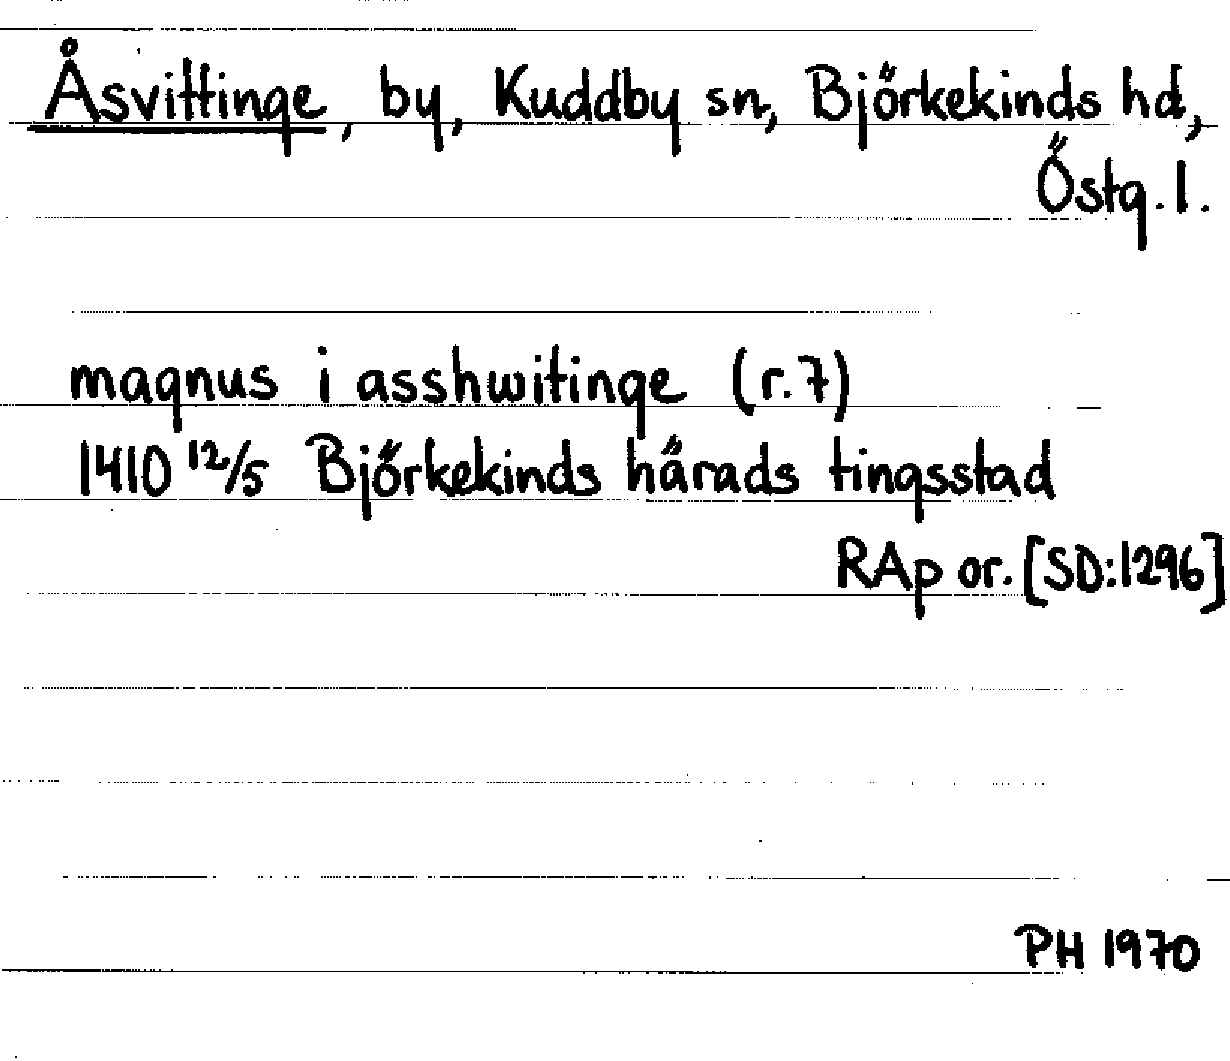 Åsvittinge, by, Kuddby sn, Björkekinds hd,
Östg. l.
magnus i asshwitinge (r. 7)
1410 12/5 Björkekinds härads tingsstad
RAp or. [SD:1296]
PH 1970